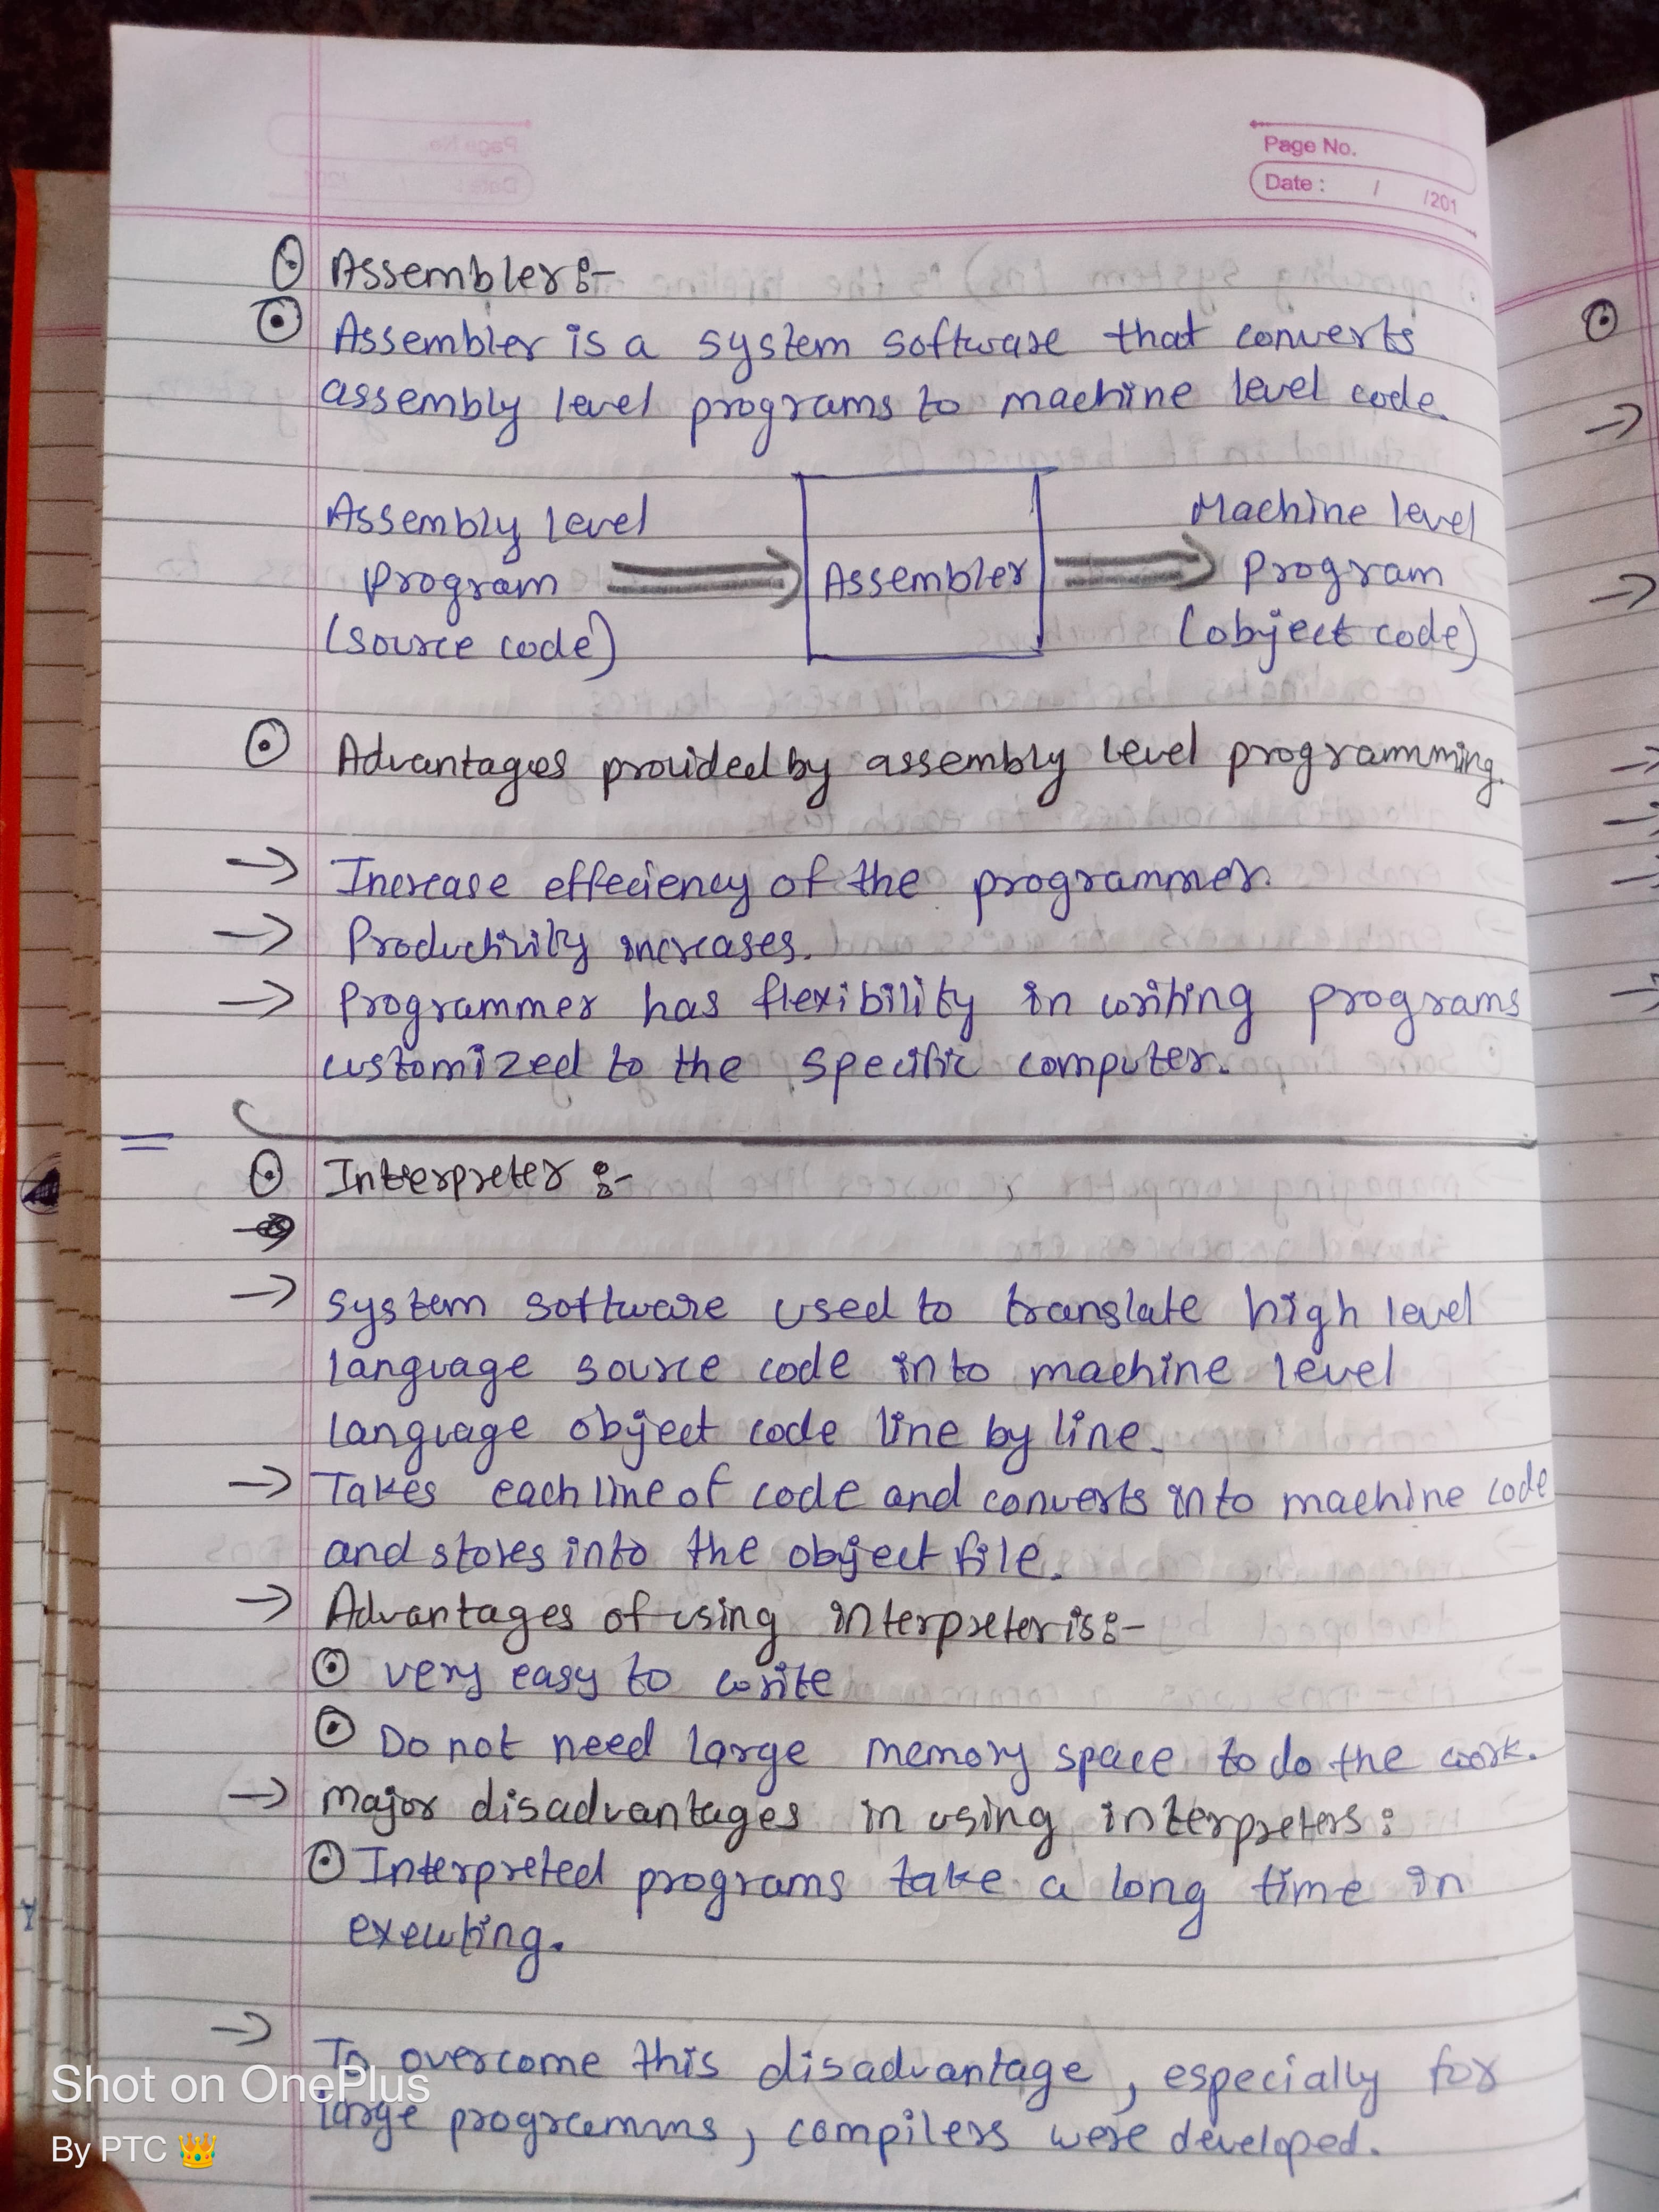 Page No.
Date : / /201
Assembler :-
Assembler is a system software that converts
assembly level programs to machine level code.
Assembly level
program
(source code)
Assembler
Machine level
program
(object code)
Advantages provided by assembly level programming.
→ Increase effeciency of the programmer.
→ Productivity increases.
→ Programmer has flexibility in writing programs
customized to the specific computer.
Interpreter :-
→ system software used to translate high level
language source code into machine level
language object code line by line.
→ Takes each line of code and converts into machine code
and stores into the object file.
→ Advantages of using interpreter is :-
very easy to write
Do not need large memory space to do the work.
→ Major disadvantages in using interpreters :
Interpreted programs take a long time in
executing.
→ To overcome this disadvantage, especially for
large programms, compilers were developed.
Shot on OnePlus
By PTC 👑